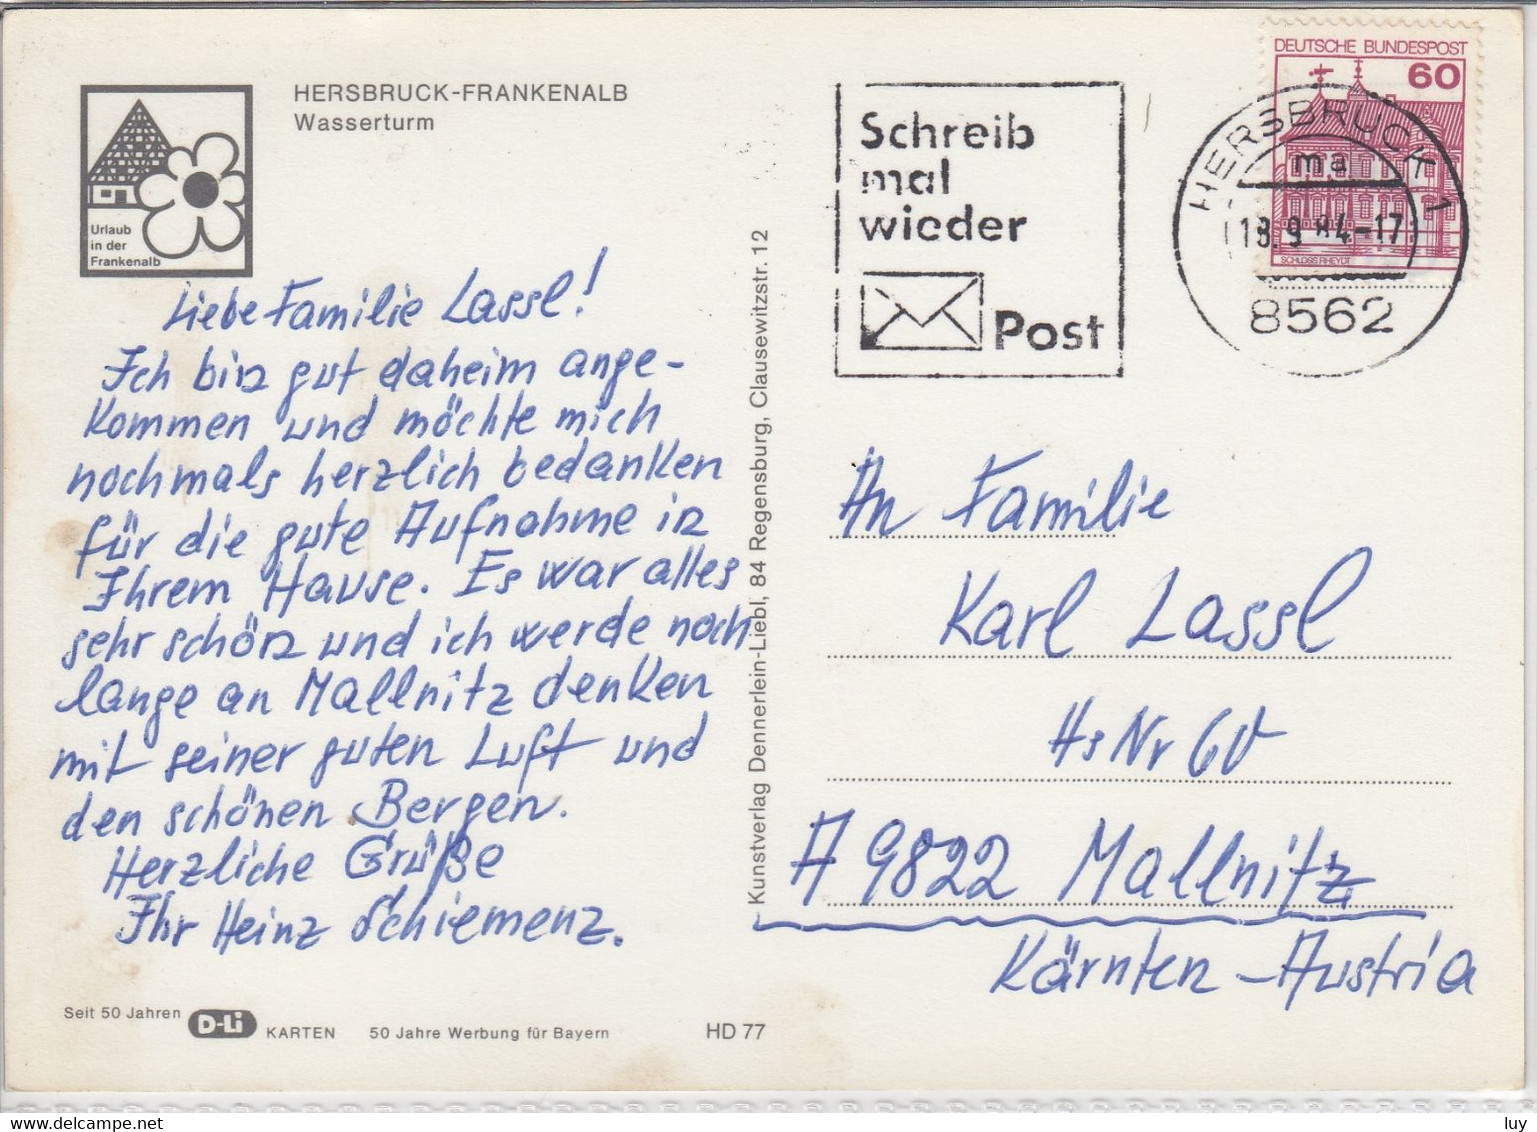 HERSBRUCK-FRANKENALB
Wasserturm
Urlaub
in der
Frankenalb
Liebe Familie Lassl!
Ich bin gut daheim ange-
kommen und möchte mich
nochmals herzlich bedanken
für die gute Aufnahme in
Ihrem Hause. Es war alles
sehr schön und ich werde noch
lange an Mallnitz denken
mit seiner guten Luft und
den schönen Bergen.
Herzliche Grüße
Ihr Heinz Schiemenz.
Seit 50 Jahren D-Li KARTEN 50 Jahre Werbung für Bayern HD 77
Kunstverlag Dennerlein-Liebl, 84 Regensburg, Clausewitzstr. 12
Schreib
mal
wieder
Post
DEUTSCHE BUNDESPOST
60
SCHLOSS RHEYDT
HERSBRUCK 1
ma
18.9.84-17
8562
An Familie
Karl Lassl
Hs Nr 60
A 9822 Mallnitz
Kärnten - Austria
delcampe.net
luy